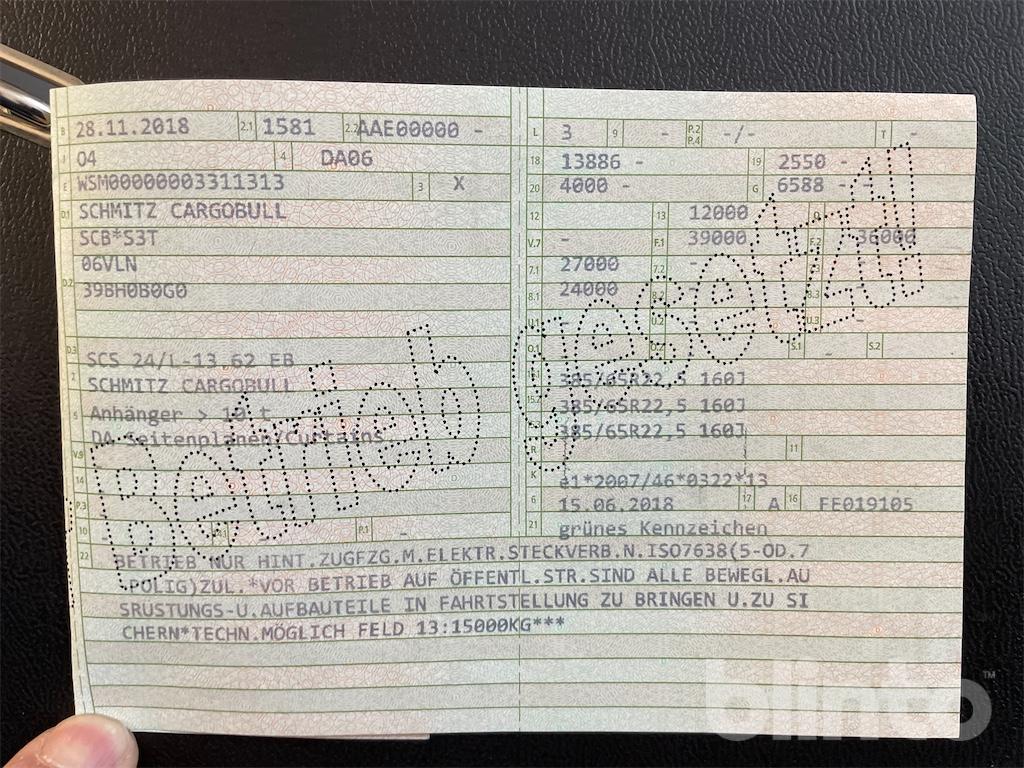 B 28.11.2018 2.1 1581 2.2 AAE00000 -
J 04 4 DA06
E WSM00000003311313 3 X
D.1 SCHMITZ CARGOBULL
SCB*S3T
06VLN
D.2 39BH0B0G0
D.3 SCS 24/L-13.62 EB
2 SCHMITZ CARGOBULL
5 Anhänger > 10 t
DA Seitenplanen/Curtains
V.9
14
P.3
10 P.1 -
L 3 9 - P.2 P.4 -/- T -
18 13886 - 19 2550 -
20 4000 - G 6588 - -
12 13 12000 Q
V.7 - F.1 39000 F.2 36000
7.1 27000 7.2 -
8.1 24000 8.2 - 8.3
U.1 U.2 U.3 -
O.1 O.2 S.1 - S.2
15.1 385/65R22,5 160J
15.2 385/65R22,5 160J
385/65R22,5 160J
R 11
K e1*2007/46*0322*13
6 15.06.2018 17 A 16 FE019105
21 grünes Kennzeichen
22 BETRIEB NUR HINT.ZUGFZG.M.ELEKTR.STECKVERB.N.ISO7638(5-OD.7
POLIG)ZUL.*VOR BETRIEB AUF ÖFFENTL.STR.SIND ALLE BEWEGL.AU
SRUSTUNGS-U.AUFBAUTEILE IN FAHRTSTELLUNG ZU BRINGEN U.ZU SI
CHERN*TECHN.MÖGLICH FELD 13:15000KG***
Außer Betrieb gesetzt
blinto™